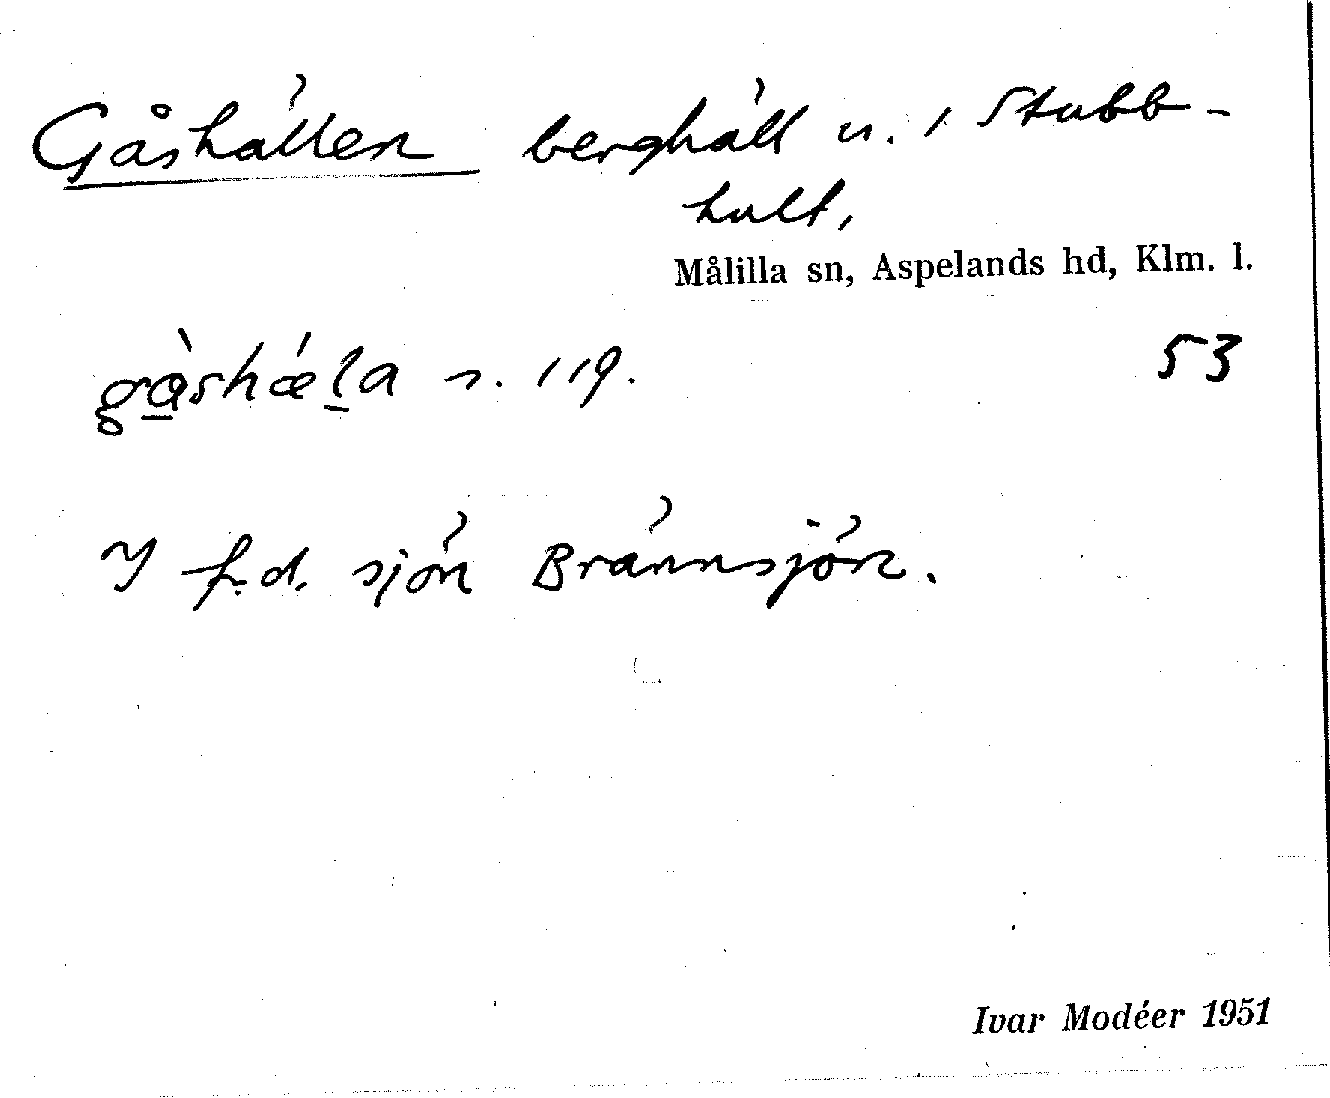 Gåshällen berghäll u. 1 Stubb-
hult,
Målilla sn, Aspelands hd, Klm. l.
gå̀shæ̀l̠a s. 119. 53
I f.d. sjön Brännsjön.
Ivar Modéer 1951